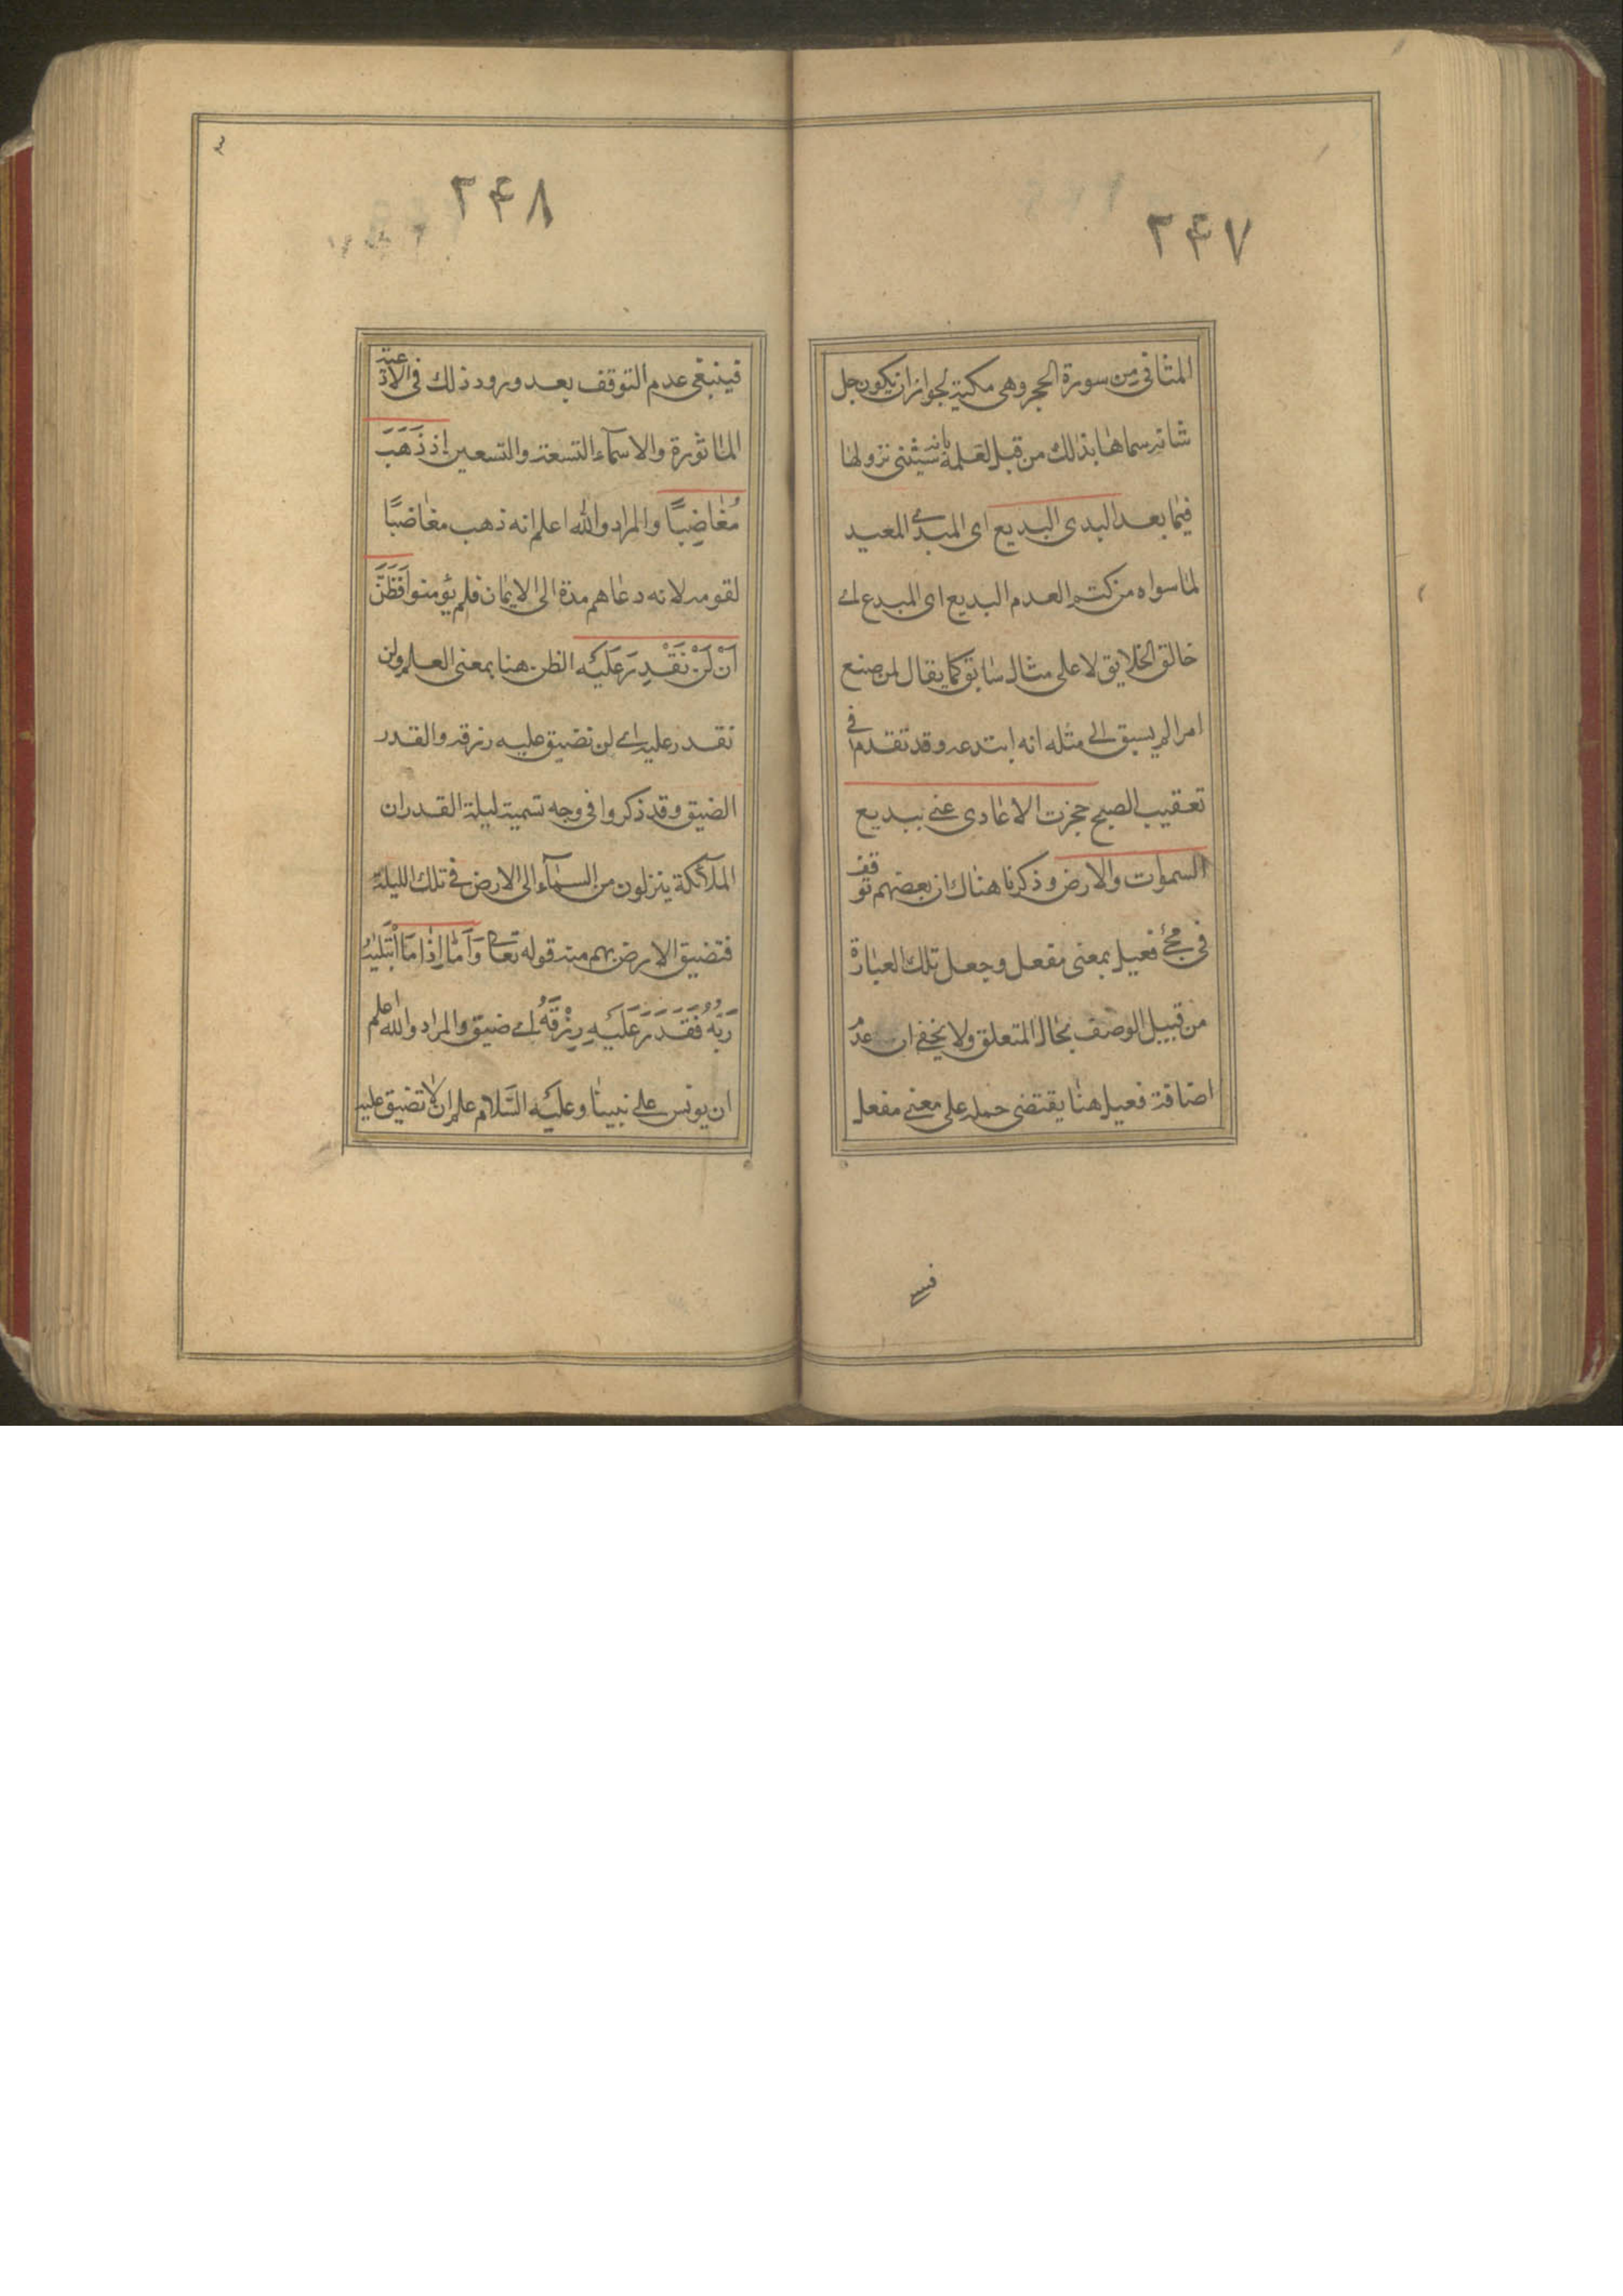 ۲۴۷
المثاني من سورة الحجر وهي مكية لجواز ان يكون جل
شانه سماها بذلك من قبل لعلمه بانه سيثني نزولها
فيما بعد البدئ البديع اي المبدئ المعيد
لما سواه من كتم العدم البديع اى المبدع اے
خالق الخلايق لا على مثال سابق كما يقال لمن صنع
امرا لم يسبق الى مثله انه ابتدعه وقد تقدم في
تعقيب الصبح حجزت الاعادى عنى ببديع
السموات والارض وذكرنا هناك ان بعضهم توقف
فى مجئ فعيل بمعنى مفعل وجعل تلك العبارة
من قبيل الوصف بحال المتعلق ولا يخفى ان عدم
اضافة فعيل هنا يقتضى حمله على معنى مفعل
۲۴۸
فينبغى عدم التوقف بعد ورود ذلك فى الادعية
الماثورة والاسمآء التسعة والتسعين اِذ ذَهَبَ
مُغاضِبًا والمراد والله اعلم انه ذهب مغاضبًا
لقومه لانه دعاهم مدة الى الايمان فلم يؤمنوا فَظَنَّ
اَنْ لَنْ نَقْدِرَ عَلَيْهِ الظن هنا بمعنى العلم ولن
نقدر عليه اے لن نضيق عليه رزقه والقدر
الضيق وقد ذكروا فى وجه تسمية ليلة القدر ان
الملآئكة ينزلون من السمآء الى الارض في تلك الليلة
فتضيق الارض بهم منه قوله تعالى وَاَمّا اِذا مَا ابْتَليٰهُ
رَبُّهُ فَقَدَرَ عَلَيْهِ رِزْقَهُ اے ضيق والمراد والله اعلم
ان يونس على نبينا وعليه السَّلام علم ان لا تضيق عليه